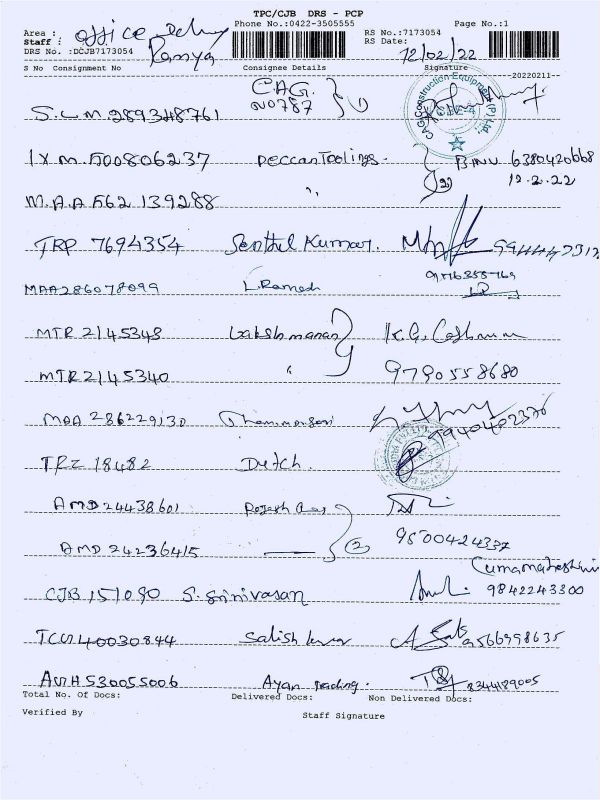 TPC/CJB DRS - PCP
Phone No.:0422-3505555 Page No.:1
Area : office Delry
Staff : Ramya
DRS No. :DCJB7173054
RS No.:7173054
RS Date: 12/02/22
S No Consignment No Consignee Details Signature
--20220211--
CAG Construction Equipments (P) Ltd.
S.L.M. 289348761 CAG. NO787 ①
IXM. 500806237 Deccan Toolings. BINU 6380420668
② 12.2.22
M.A.A 562 139288 "
TRP 7694354 Senthil Kumar.
MAA286078099 L.Ramesh
MTR 2145348 Lakshmanan
MTR 2145340 " 9790558680
MAA 286229130
TRZ 18482 Dutch.
AMD 24438601 Rajesh
AMD 24236415 ② 9500424337
CJB 151090 S. Srinivasan 9842243300
40030844 Satish 9566998635
AMA 530055006 Ayan Trading. 8344189005
Total No. Of Docs: Delivered Docs: Non Delivered Docs:
Verified By Staff Signature